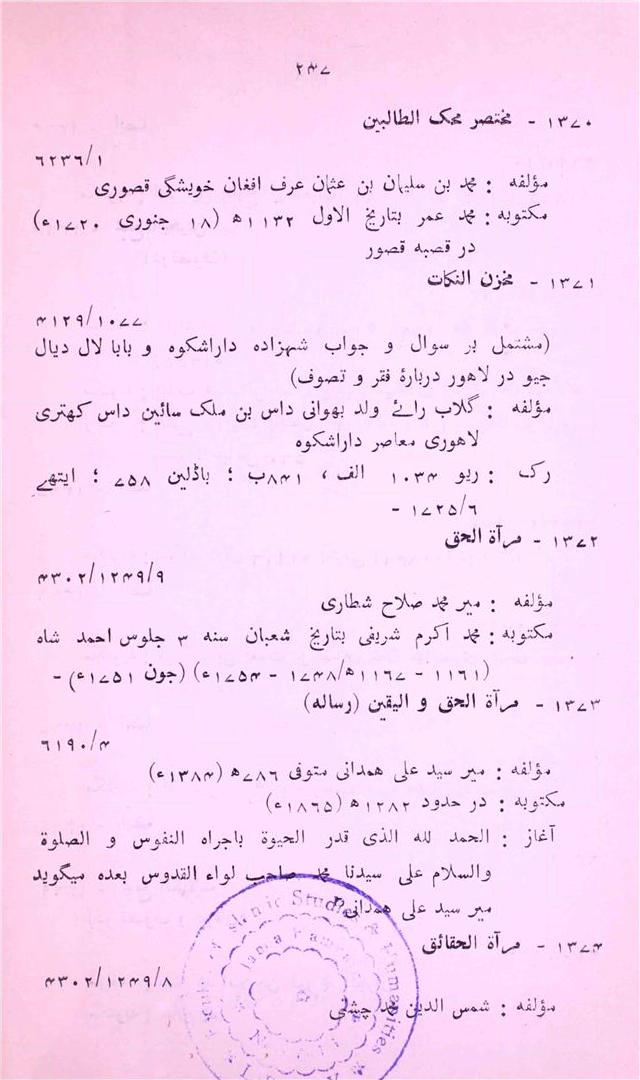 ۲۴۷
۱۳۷۰ - مختصر محک الطالبین
۶۲۳۶/۱
مؤلفه : محمد بن سلیمان بن عثمان عرف افغان خویشگی قصوری
مکتوبه : محمد عمر بتاریخ الاول ۱۱۳۲ھ (۱۸ جنوری ۱۷۲۰ء)
در قصبه قصور
۱۳۷۱ - مخزن النکات
۴۱۲۹/۱۰۷۷
(مشتمل بر سوال و جواب شهزاده داراشکوه و بابا لال دیال
جیو در لاهور دربارۀ فقر و تصوف)
مؤلفه : گلاب رائے ولد بهوانی داس بن ملک سائین داس کهتری
لاهوری معاصر داراشکوه
رک : ریو ۱۰۳۴ الف ، ۸۴۱ب ؛ باڈلین ۷۵۸ ؛ ایتهے
۱۷۲۵/۶ -
۱۳۷۲ - مرآة الحق
۴۳۰۲/۱۲۴۹/۹
مؤلفه : میر محمد صلاح شطاری
مکتوبه : محمد اکرم شریفی بتاریخ شعبان سنه ۳ جلوس احمد شاه
(۱۱۶۱ - ۱۱۶۷ھ/۱۷۴۸ - ۱۷۵۴ء) (جون ۱۷۵۱ء) -
۱۳۷۳ - مرآة الحق و الیقین (رساله)
۶۱۹۰/۴
مؤلفه : میر سید علی همدانی متوفی ۷۸۶ھ (۱۳۸۴ء)
مکتوبه : در حدود ۱۲۸۲ھ (۱۸۶۵ء)
آغاز : الحمد لله الذی قدر الحیوة باجراه النفوس و الصلوة
والسلام علی سیدنا محمد صاحب لواء القدوس بعده میگوید
میر سید علی همدانی
۱۳۷۴ - مرآة الحقائق
۴۳۰۲/۱۲۴۹/۸
مؤلفه : شمس الدین محمد چشتی
of Islamic Studies & Humanities